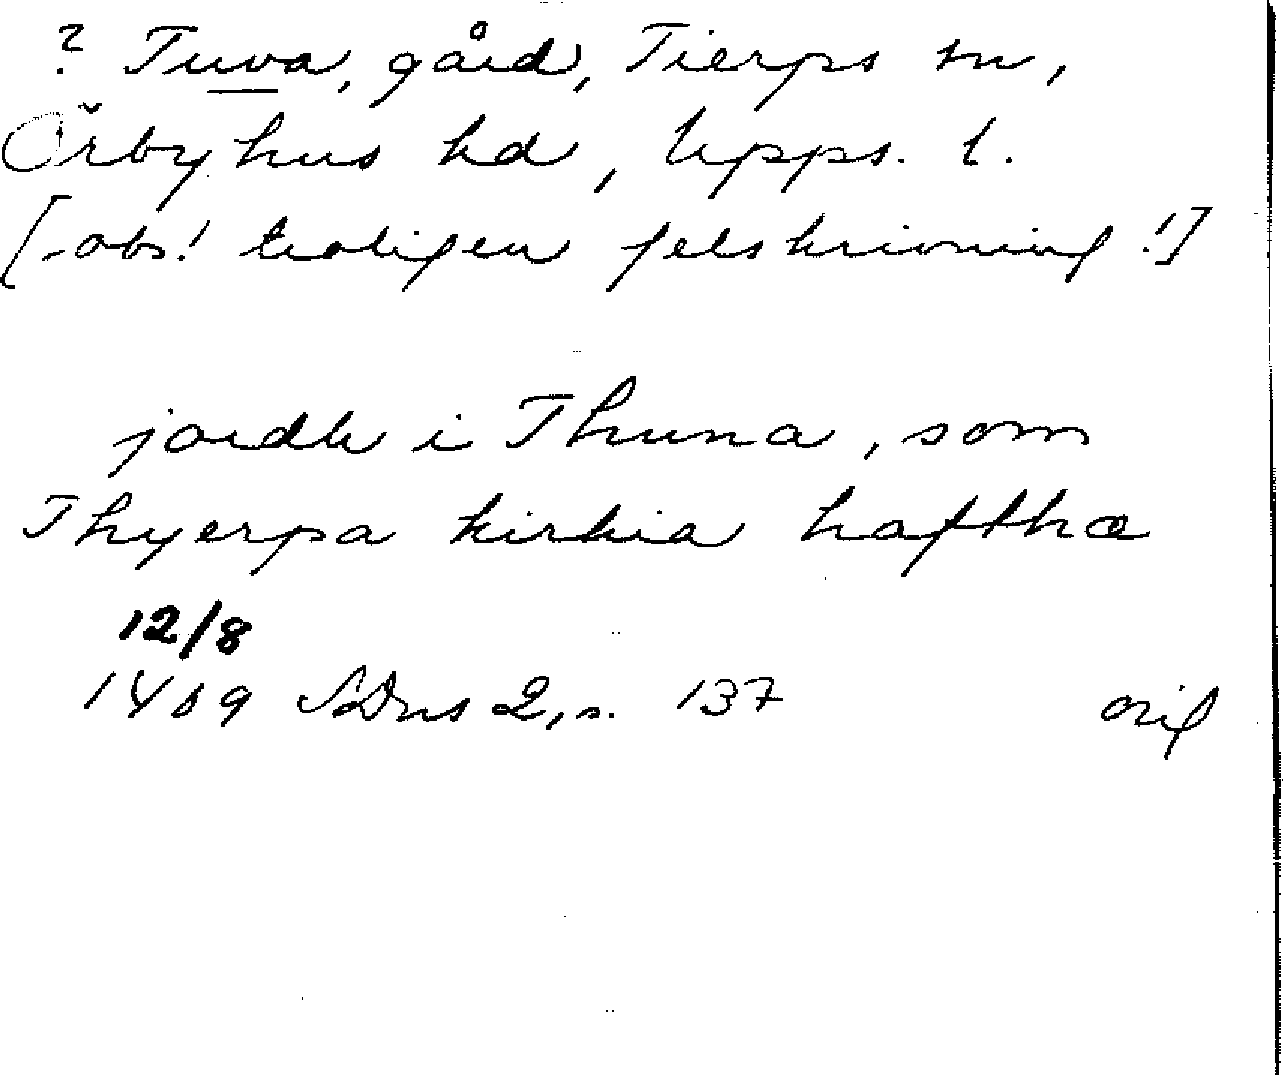 ? Tuva, gård, Tierps sn,
Örbyhus hd, Upps. l.
[-obs! troligen felskrivning!]
jordh i Thuna, som
Thyerpa kirkia hafthæ
12/8
1409 SDns 2, s. 137 orig